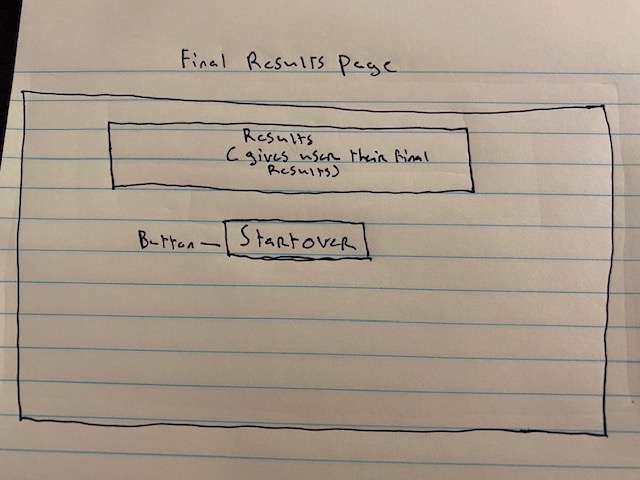 Final Results Page
Results
(gives user their final
Results)
Button
Startover